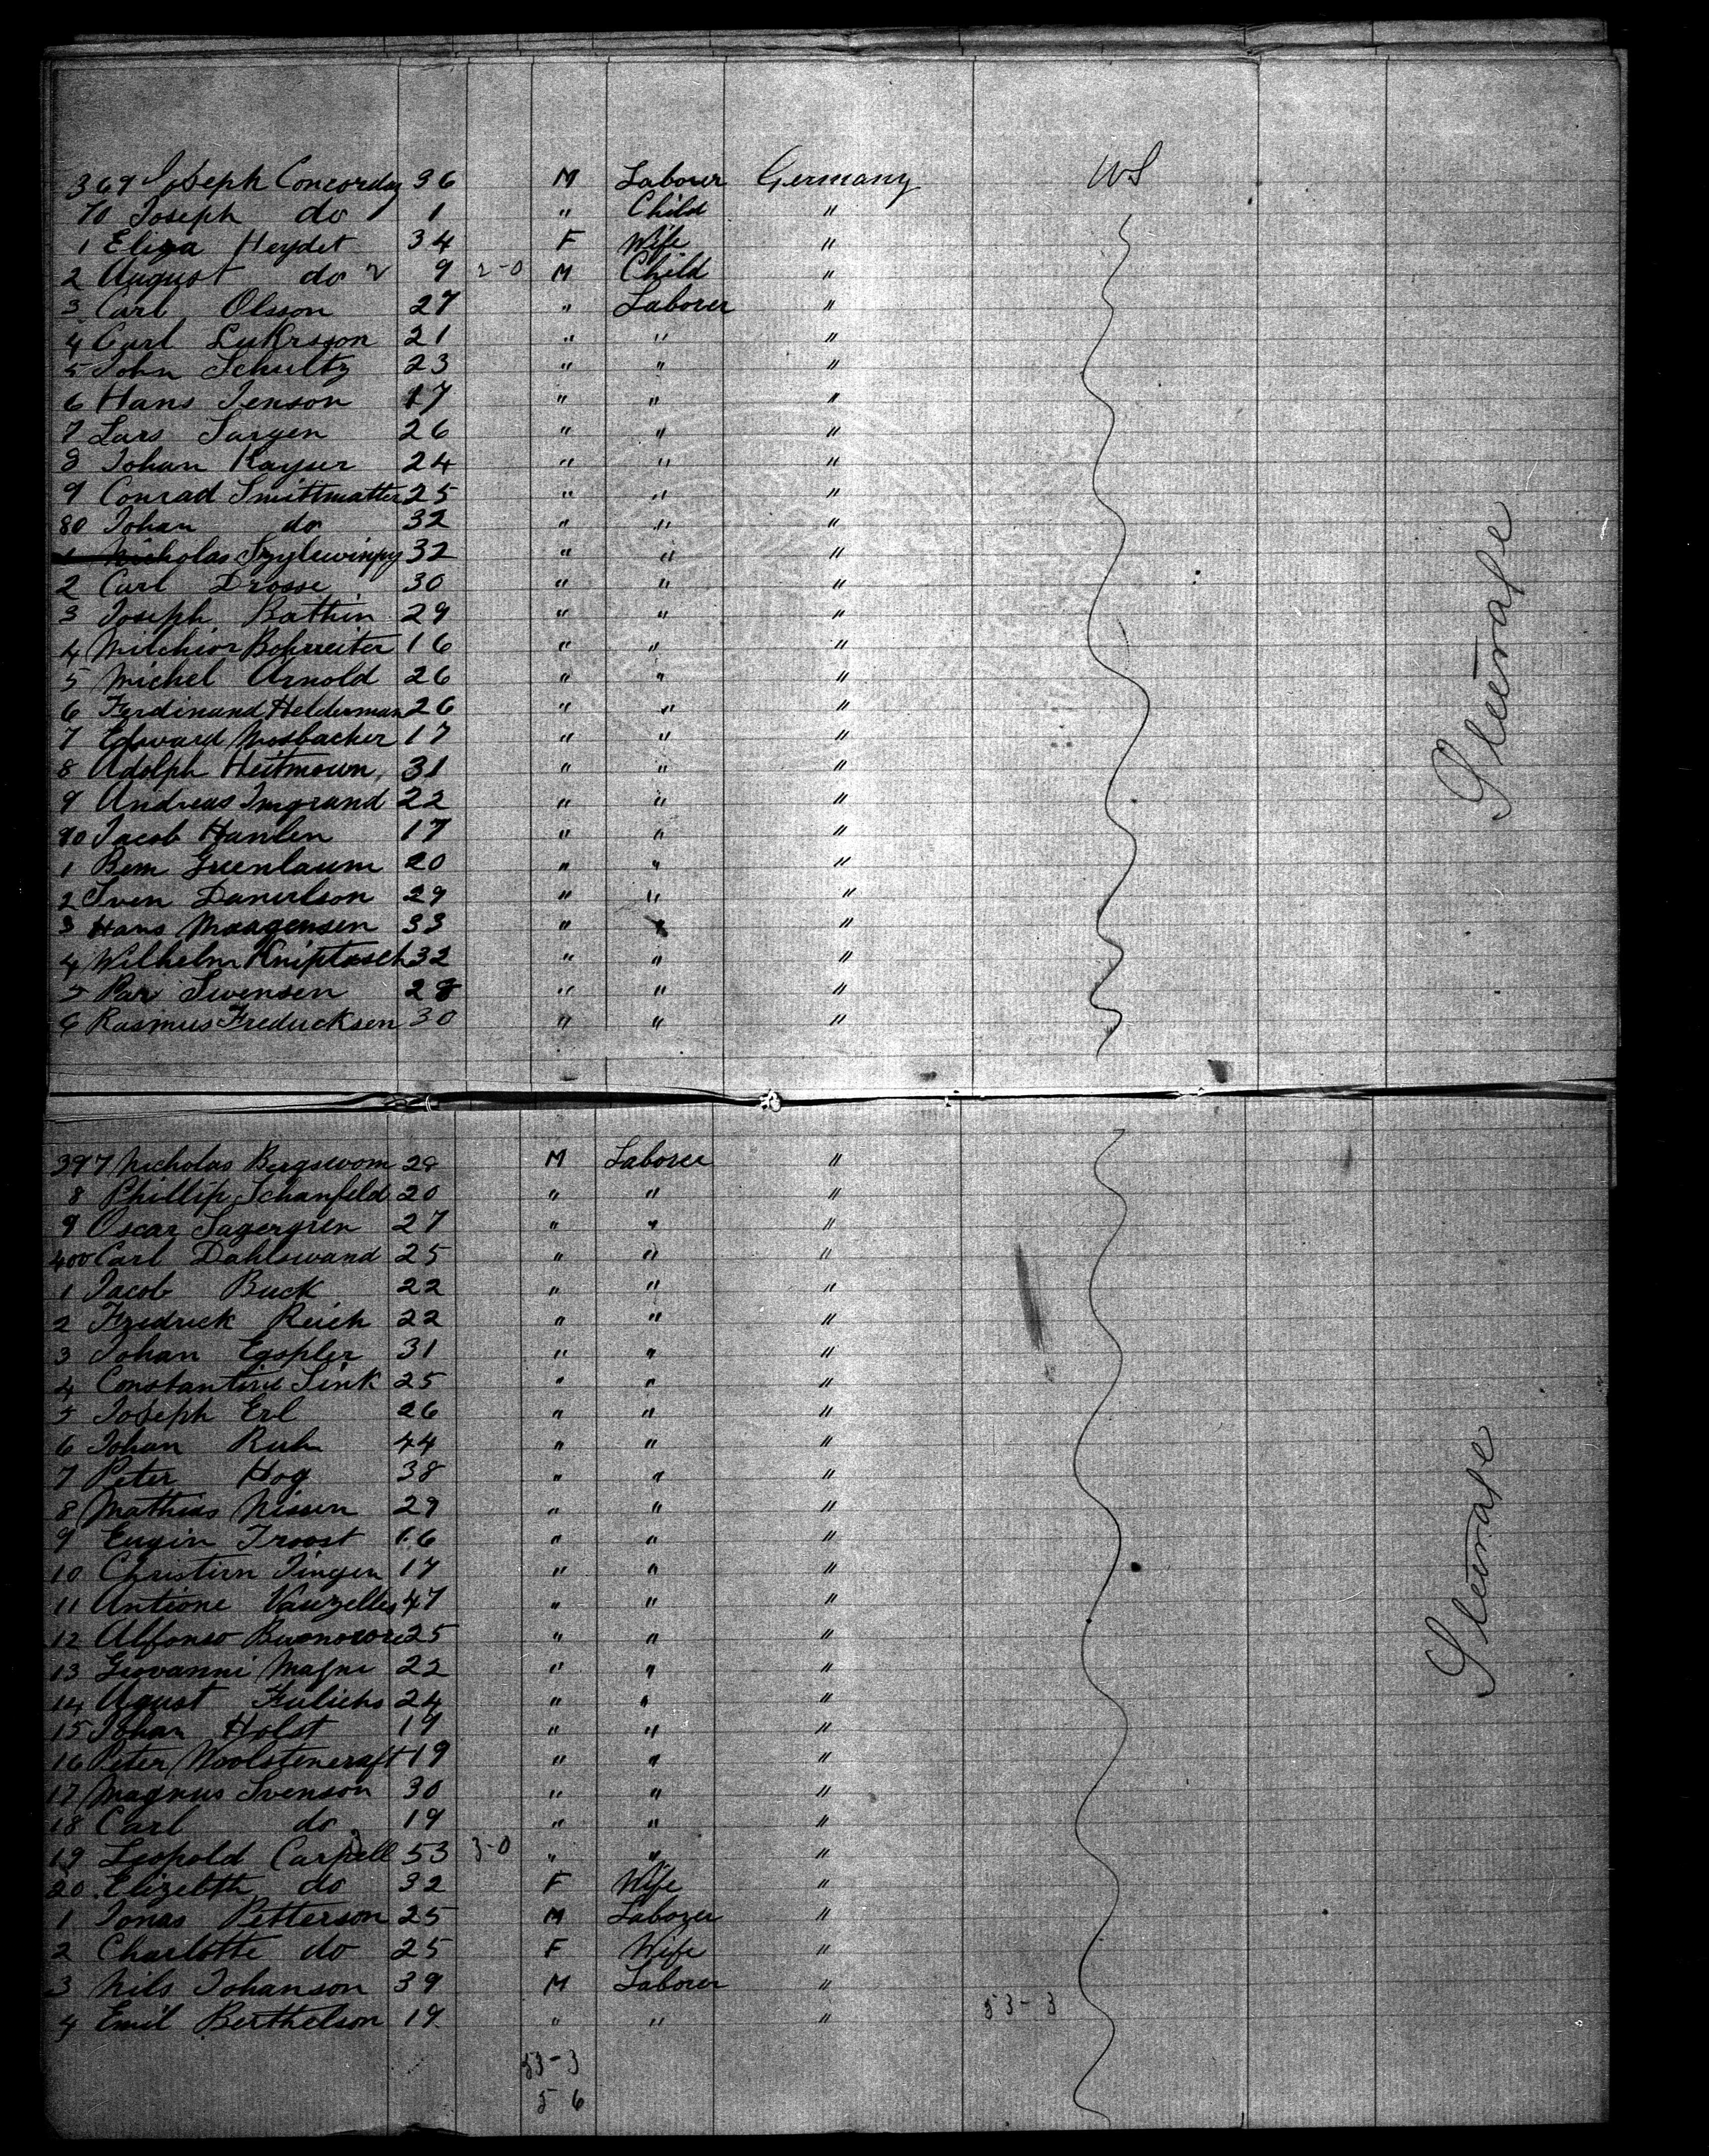 369 Joseph Concorday 36 M Laborer Germany US
70 Joseph do 1 " Child "
1 Eliza Heydet 34 F Wife "
2 August do 9 2-0 M Child "
3 Carl Olsson 27 " Laborer "
4 Carl 21 " " "
5 John Schultz 23 " " "
6 Hans Jenson 17 " " "
7 Lars Jargen 26 " " "
8 Johan Kayser 24 " " "
9 Conrad Smittmatter 25 " " "
80 Johan do 32 " " "
1 Nicholas 32 " " "
2 Carl Drosse 30 " " "
3 Joseph Bathin 29 " " "
4 Milchior Bohrreiter 16 " " "
5 Michel Arnold 26 " " "
6 Ferdinand Helderman 26 " " "
7 Edward Mosbacher 17 " " "
8 Adolph Heitmown 31 " " "
9 Andreas Imgrand 22 " " "
90 Jacob Hanlen 17 " " "
1 Bem Greenlaum 20 " " "
2 Sven Danielson 29 " " "
3 Hans Maagensen 33 " " "
4 Wilhelm Kniptasch 32 " " "
5 Par Svensen 28 " " "
6 Rasmus Fredricksen 30 " " "
Steerage
397 Nicholas Bergswom 28 M Laborer "
8 Phillip Schanfeld 20 " " "
9 Oscar Sagergren 27 " " "
400 Carl Dahlswand 25 " " "
1 Jacob Buck 22 " " "
2 Fredrick Reich 22 " " "
3 Johan Egspler 31 " " "
4 Constantine Sink 25 " " "
5 Joseph Erl 26 " " "
6 Johan Ruh 44 " " "
7 Peter Hog 38 " " "
8 Mathias Nissen 29 " " "
9 Eugin Troost 16 " " "
10 Christian Jingen 17 " " "
11 Antione Vauzelles 47 " " "
12 Alfonso Buonocore 25 " " "
13 Giovanni Magni 22 " " "
14 Agust Fulichs 24 " " "
15 Johan Holst 19 " " "
16 Peter Woolstencraft 19 " " "
17 Magnus Svenson 30 " " "
18 Carl do 19 " " "
19 Leopold Carpell 53 3-0 " " "
20 Elizebth do 32 F Wife "
1 Jonas Petterson 25 M Laborer "
2 Charlotte do 25 F Wife "
3 Nils Johanson 39 M Laborer "
4 Emil Berthelson 19 " " " 53-3
53-3
5 6
Steerage